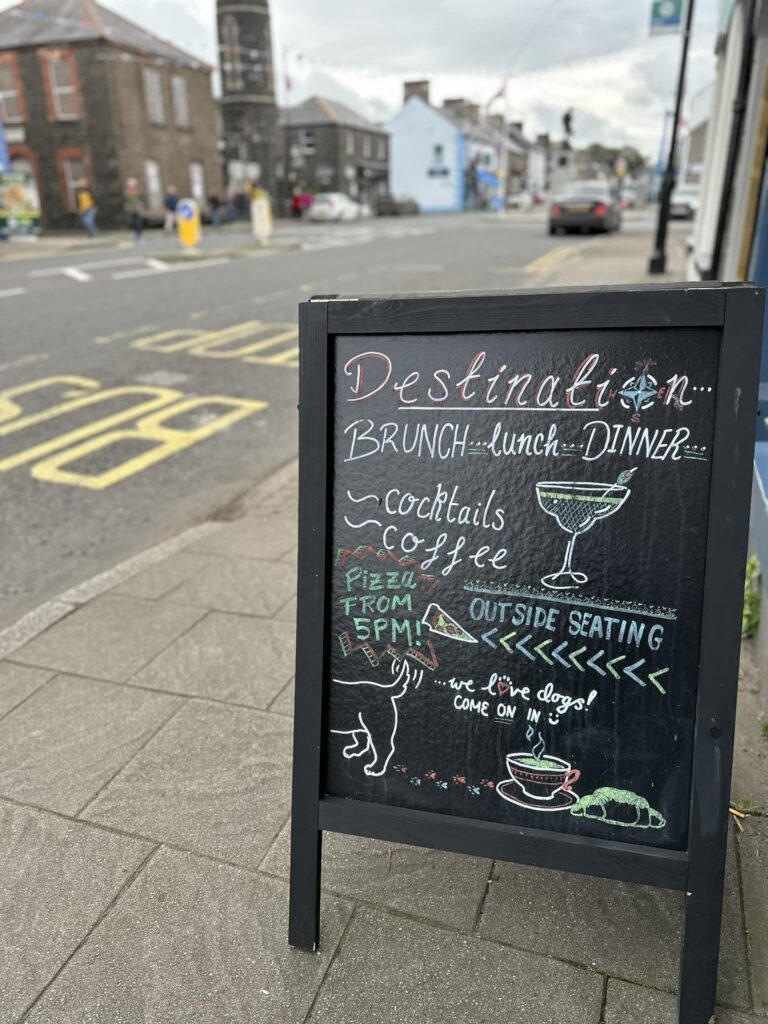 Destination...
BRUNCH...lunch...DINNER...
cocktails
coffee
Pizza
FROM
5PM!
OUTSIDE SEATING
...we love dogs!
COME ON IN
BUS